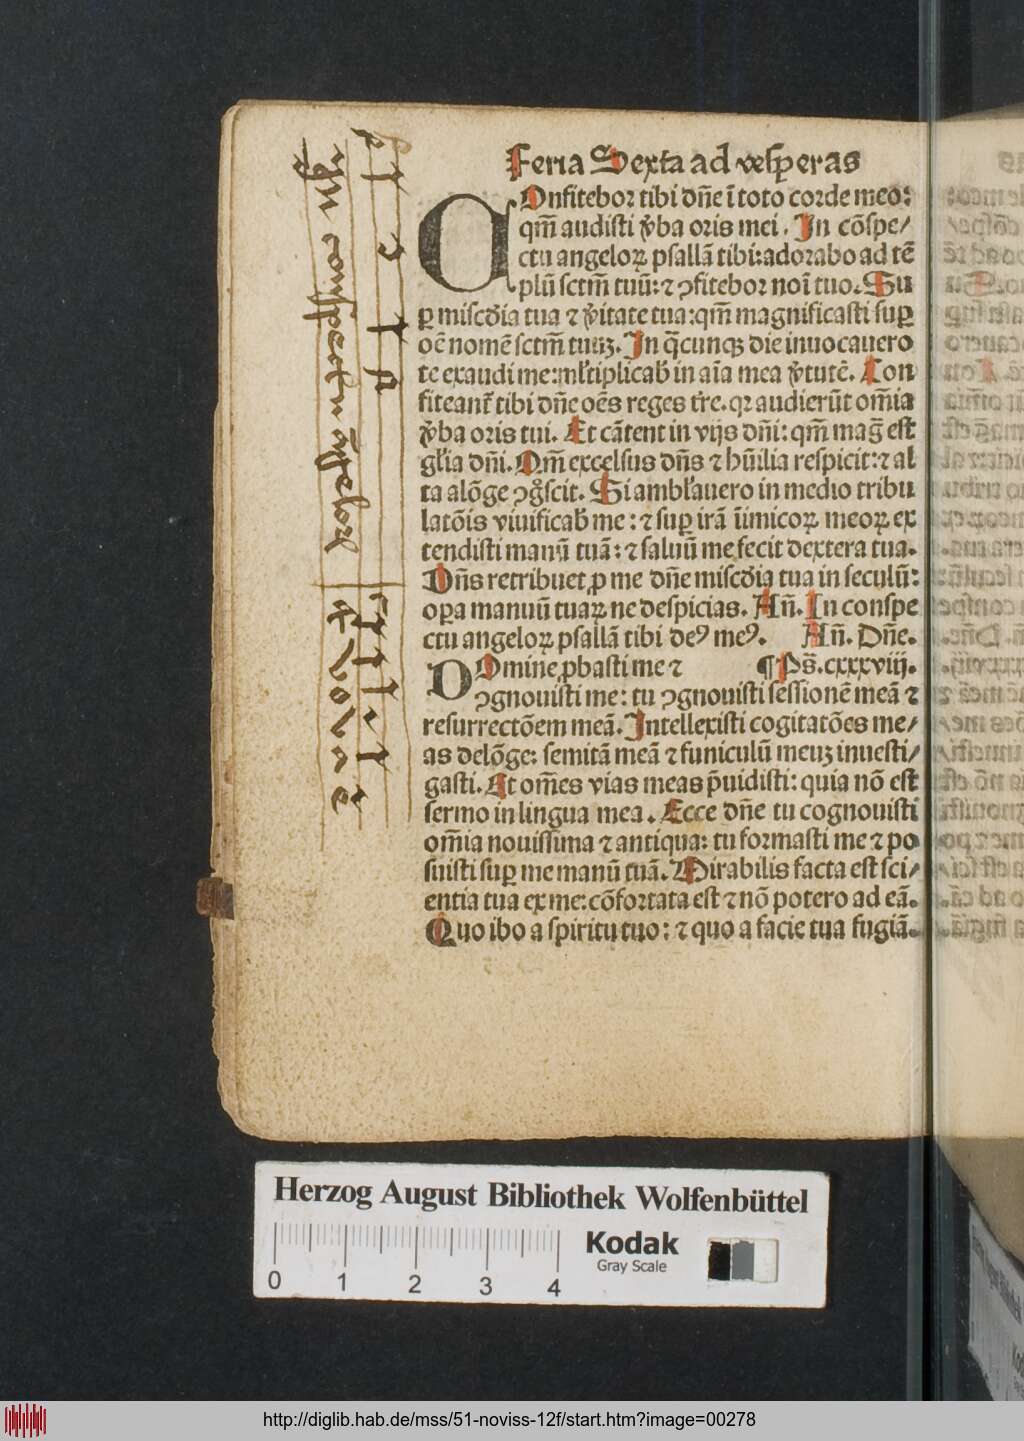 Feria Sexta ad vesꝑeras
COnfitebor tibi dñe ĩ toto corde meo:
qm̃ audisti v̾ba oris mei. In cõspe/
ctu angeloꝝ psallã tibi: adorabo ad tẽ
plũ sctm̃ tuũ: ⁊ ꝯfitebor noĩ tuo. Su
ꝑ misc̃dia tua ⁊ v̾itate tua: qm̃ magnificasti suꝑ
oẽ nomẽ sctm̃ tuuꝫ. In q̃cunqꝫ die inuocauero
te exaudi me: ml̃tiplicab̾ in aĩa mea v̾tutẽ. Con
fiteant᷑ tibi dñe oẽs reges tr̃e. qꝛ audierũt om̃ia
v̾ba oris tui. Et cãtent in vijs dñi: qm̃ mag̃ est
gl̃ia dñi. Qm̃ excelsus dñs ⁊ hũilia respicit: ⁊ al
ta alõge ꝯg̊scit. Si ambl̾auero in medio tribu
latõis viuificab̾ me: ⁊ suꝑ irã ĩimicoꝝ meoꝝ ex
tendisti manũ tuã: ⁊ saluũ me fecit dextera tua.
Dñs retribuet ꝓ me dñe misc̃dia tua in seculũ:
oꝑa manuũ tuaꝝ ne despicias. Añ. In conspe
ctu angeloꝝ psallã tibi deꝰ meꝰ. Añ. Dñe.
DOmine ꝓbasti me ⁊ ¶ Ps̃. cxxxviij.
ꝯgnouisti me: tu ꝯgnouisti sessionẽ meã ⁊
resurrectõem meã. Intellexisti cogitatões me/
as delõge: semitã meã ⁊ funiculũ meuꝫ inuesti/
gasti. Et om̃es vias meas p̃uidisti: quia nõ est
sermo in lingua mea. Ecce dñe tu cognouisti
om̃ia nouissima ⁊ antiqua: tu formasti me ⁊ po
suisti suꝑ me manũ tuã. Mirabilis facta est sci/
entia tua ex me: cõfortata est ⁊ nõ potero ad eã.
Quo ibo a spiritu tuo: ⁊ quo a facie tua fugiã.
conspectu ãgeloꝝ
Herzog August Bibliothek Wolfenbüttel
0 1 2 3 4
Kodak
Gray Scale
http://diglib.hab.de/mss/51-noviss-12f/start.htm?image=00278